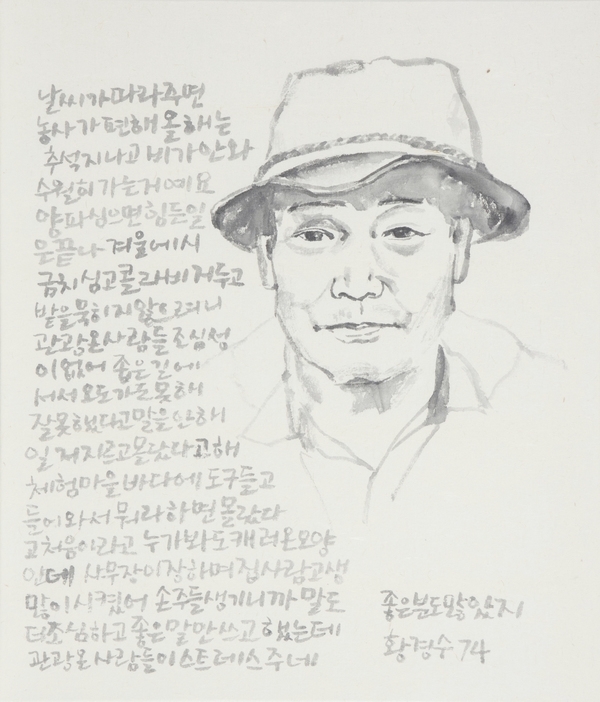 날씨가 따라주면
농사가 편해 올해는
추석 지나고 비가 안 와
수월히 가는 거예요
양파 심으면 힘든 일
은 끝나 겨울에 시
금치 심고 콜라비 거두고
밭을 묵히지 않으려니
관광 온 사람들 조심성
이 없어 좁은 길에
서서 오도가도 못해
잘못했다고 말을 안 해
일 저지르고 몰랐다고 해
체험마을 바다에 도구 들고
들어와서 뭐라 하면 몰랐다
고 처음이라고 누가 봐도 캐러 온 모양
인데 사무장 이장 하며 집사람 고생
많이 시켰어 손주들 생기니까 말도
더 조심하고 좋은 말만 쓰고 했는데
관광 온 사람들이 스트레스 주네
좋은 분도 많았지
황경수 74